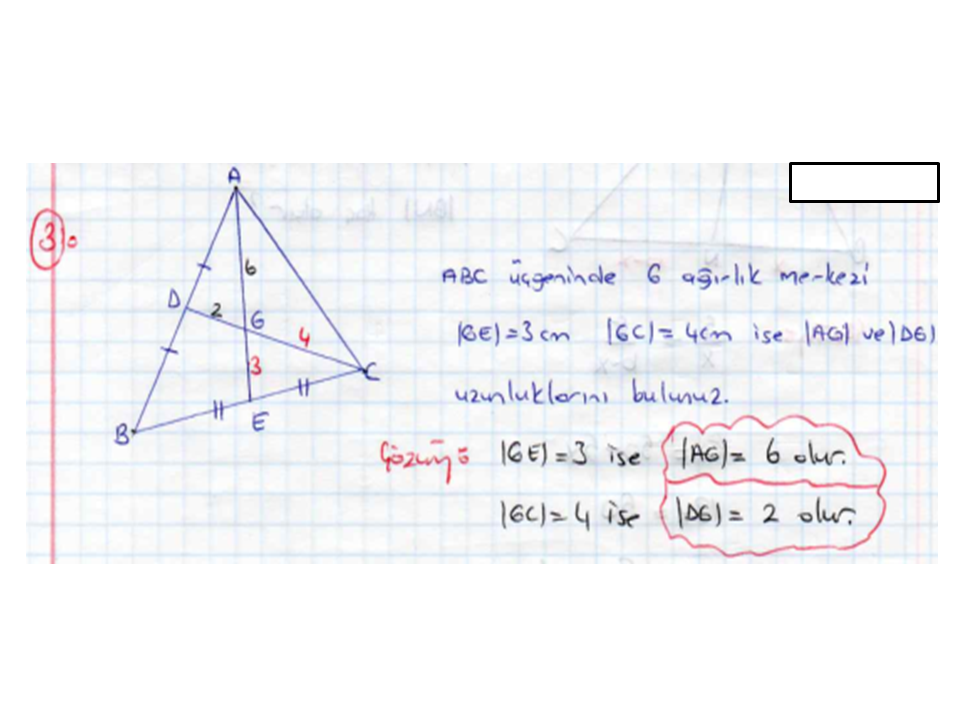 A
3)o
6
D
2
G
4
3
C
B
E
ABC üçgeninde G ağırlık merkezi
|GE|=3cm |GC|=4cm ise |AG| ve |DG|
uzunluklarını bulunuz.
Çözüm: |GE|=3 ise |AG|= 6 olur.
|GC|=4 ise |DG|= 2 olur.